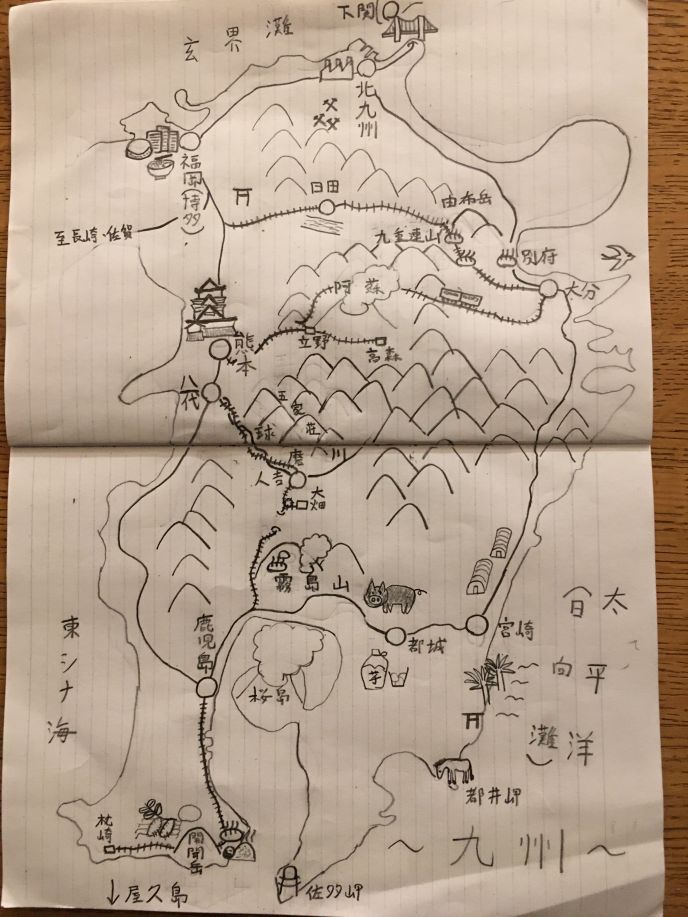 下関
玄界灘
北九州
福岡
(博多)
日田
由布岳
九重連山
別府
至長崎・佐賀
大分
阿蘇
熊本
立野
高森
八代
五家荘
球磨川
人吉
大畑
霧島山
鹿児島
都城
宮崎
太平洋
(日向灘)
東シナ海
桜島
芋
都井岬
枕崎
開聞岳
~九州~
↓屋久島
佐多岬